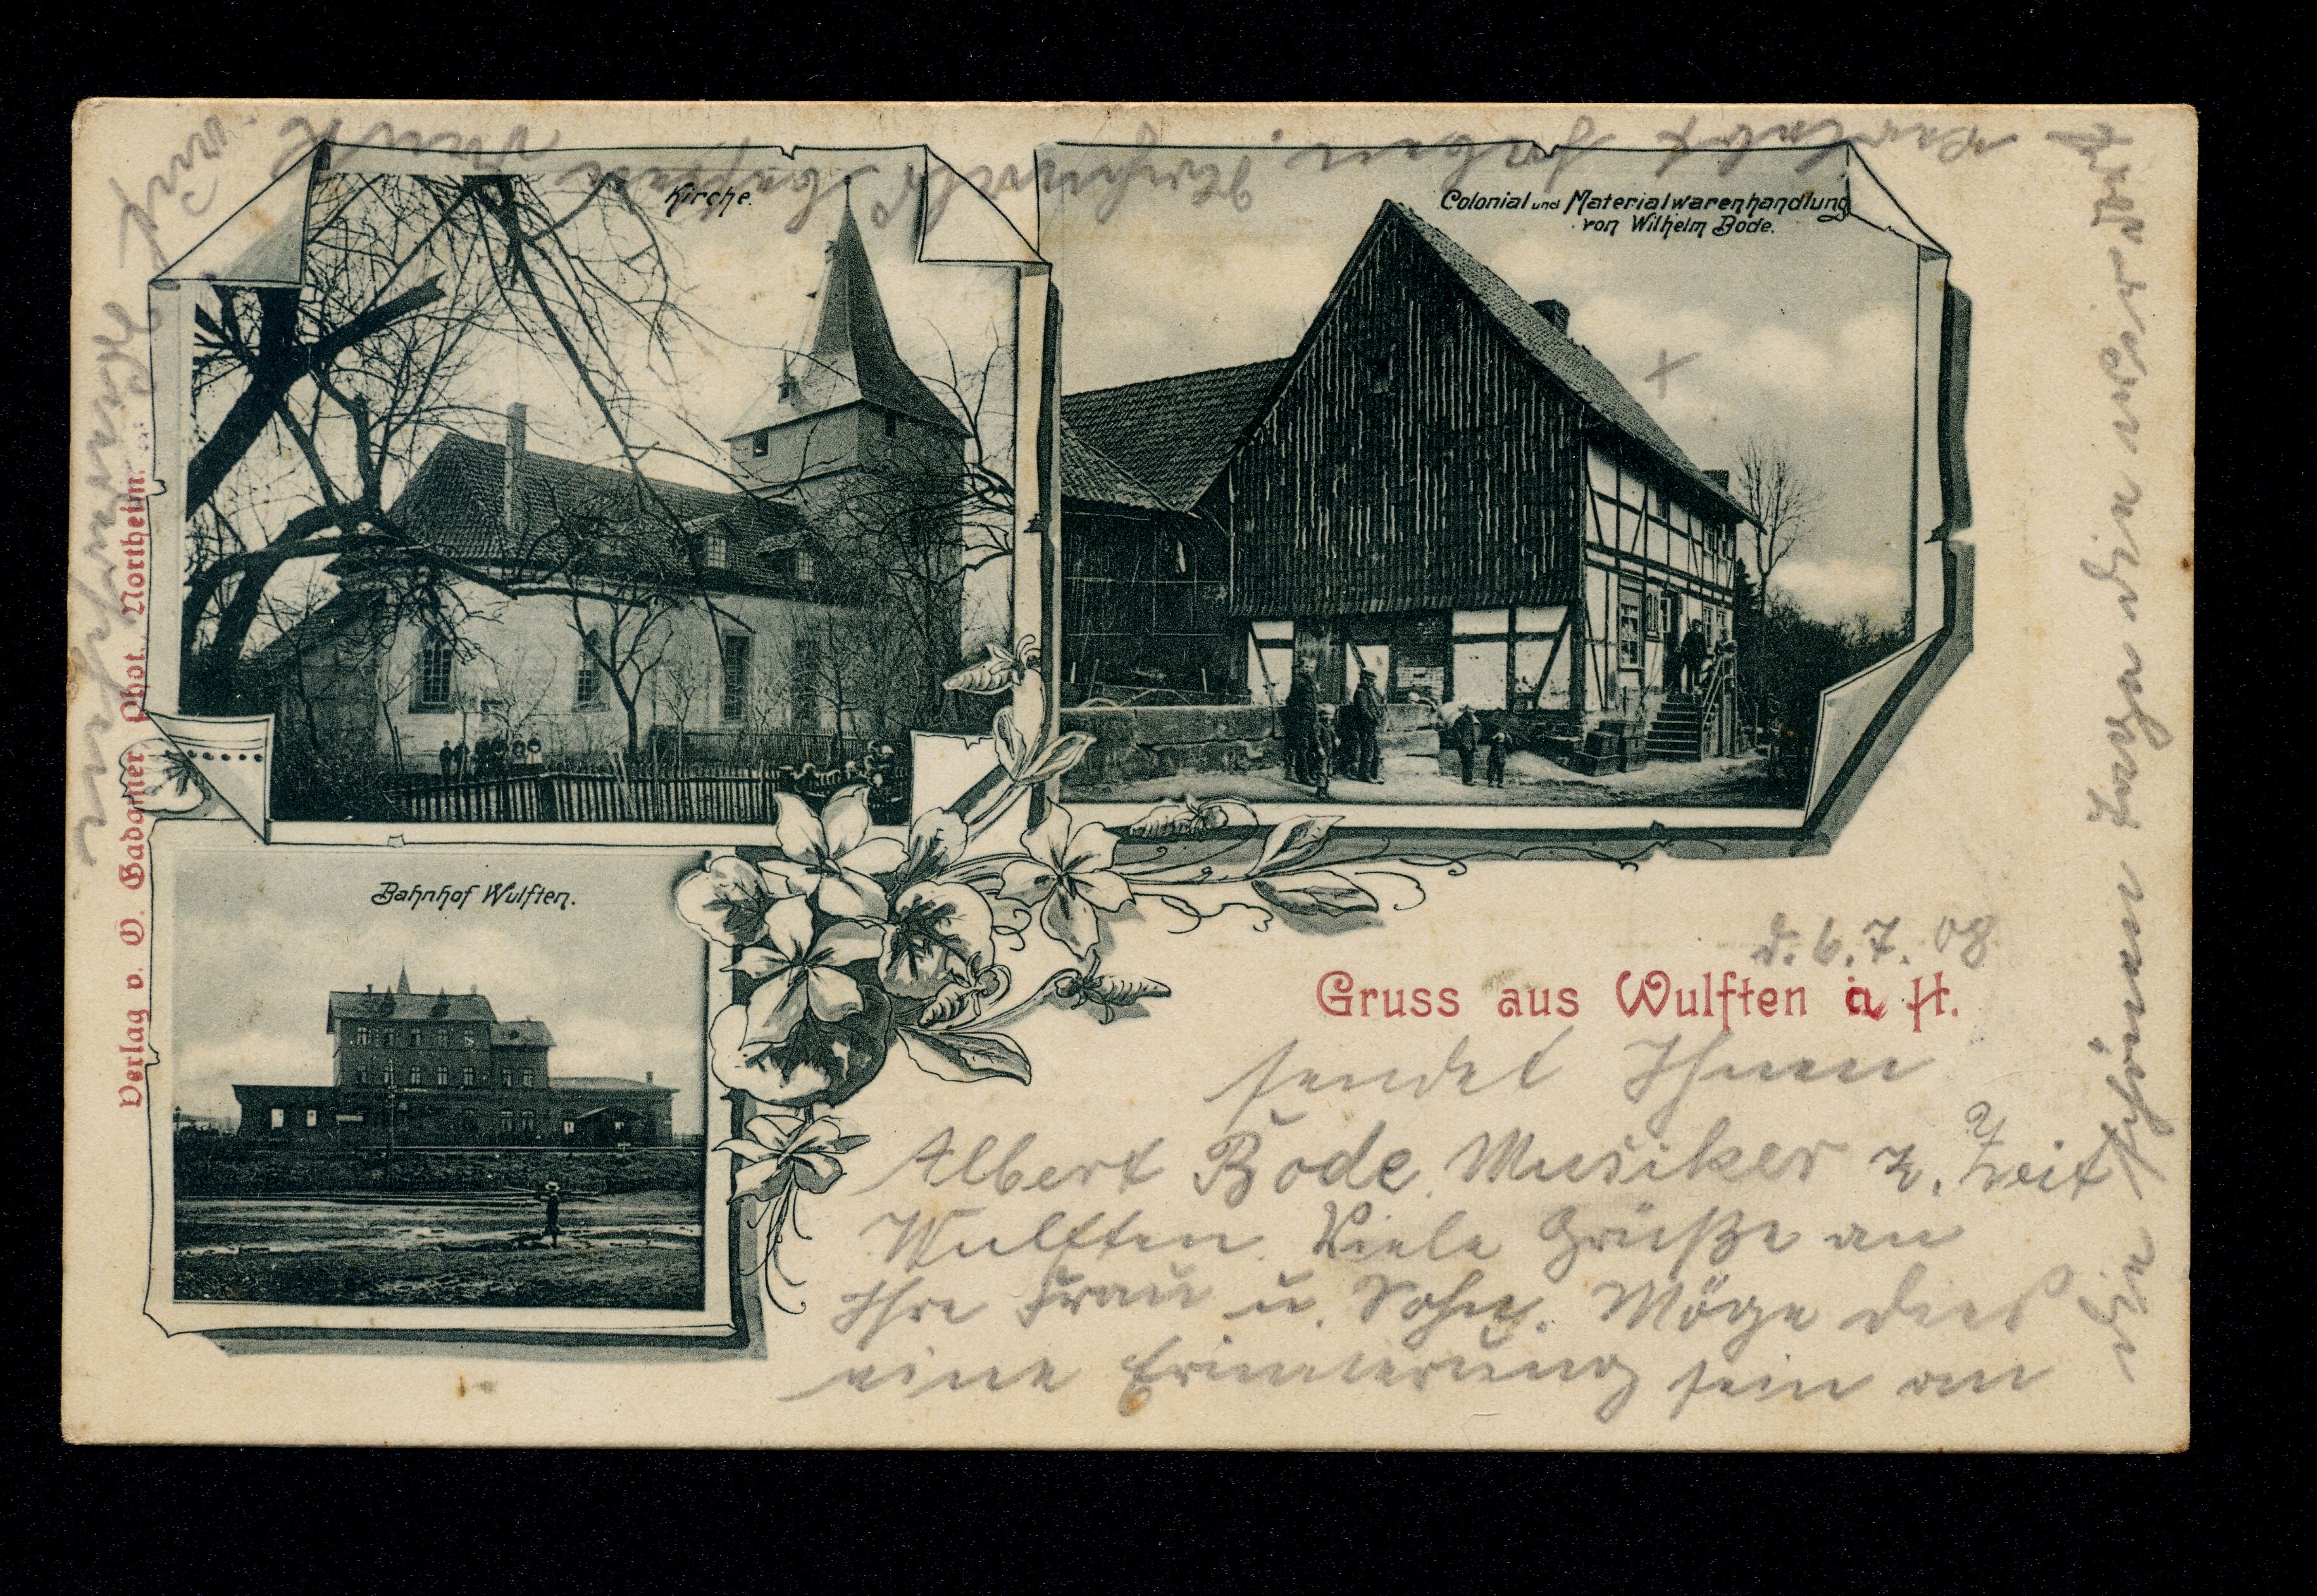 Kirche.
Colonial und Materialwarenhandlung
von Wilhelm Bode.
Bahnhof Wulften.
Verlag v. O. Gadamer, Phot., Northeim.
d. 6.7.08
Gruss aus Wulften a H.
sendet Ihnen
Albert Bode Musiker z. Zeit
Wulften. Viele Grüße an
Ihre Frau u. Sohn. Möge dies
eine Erinnerung sein an
die schönen
die wir
verlebt haben.
vielen
für